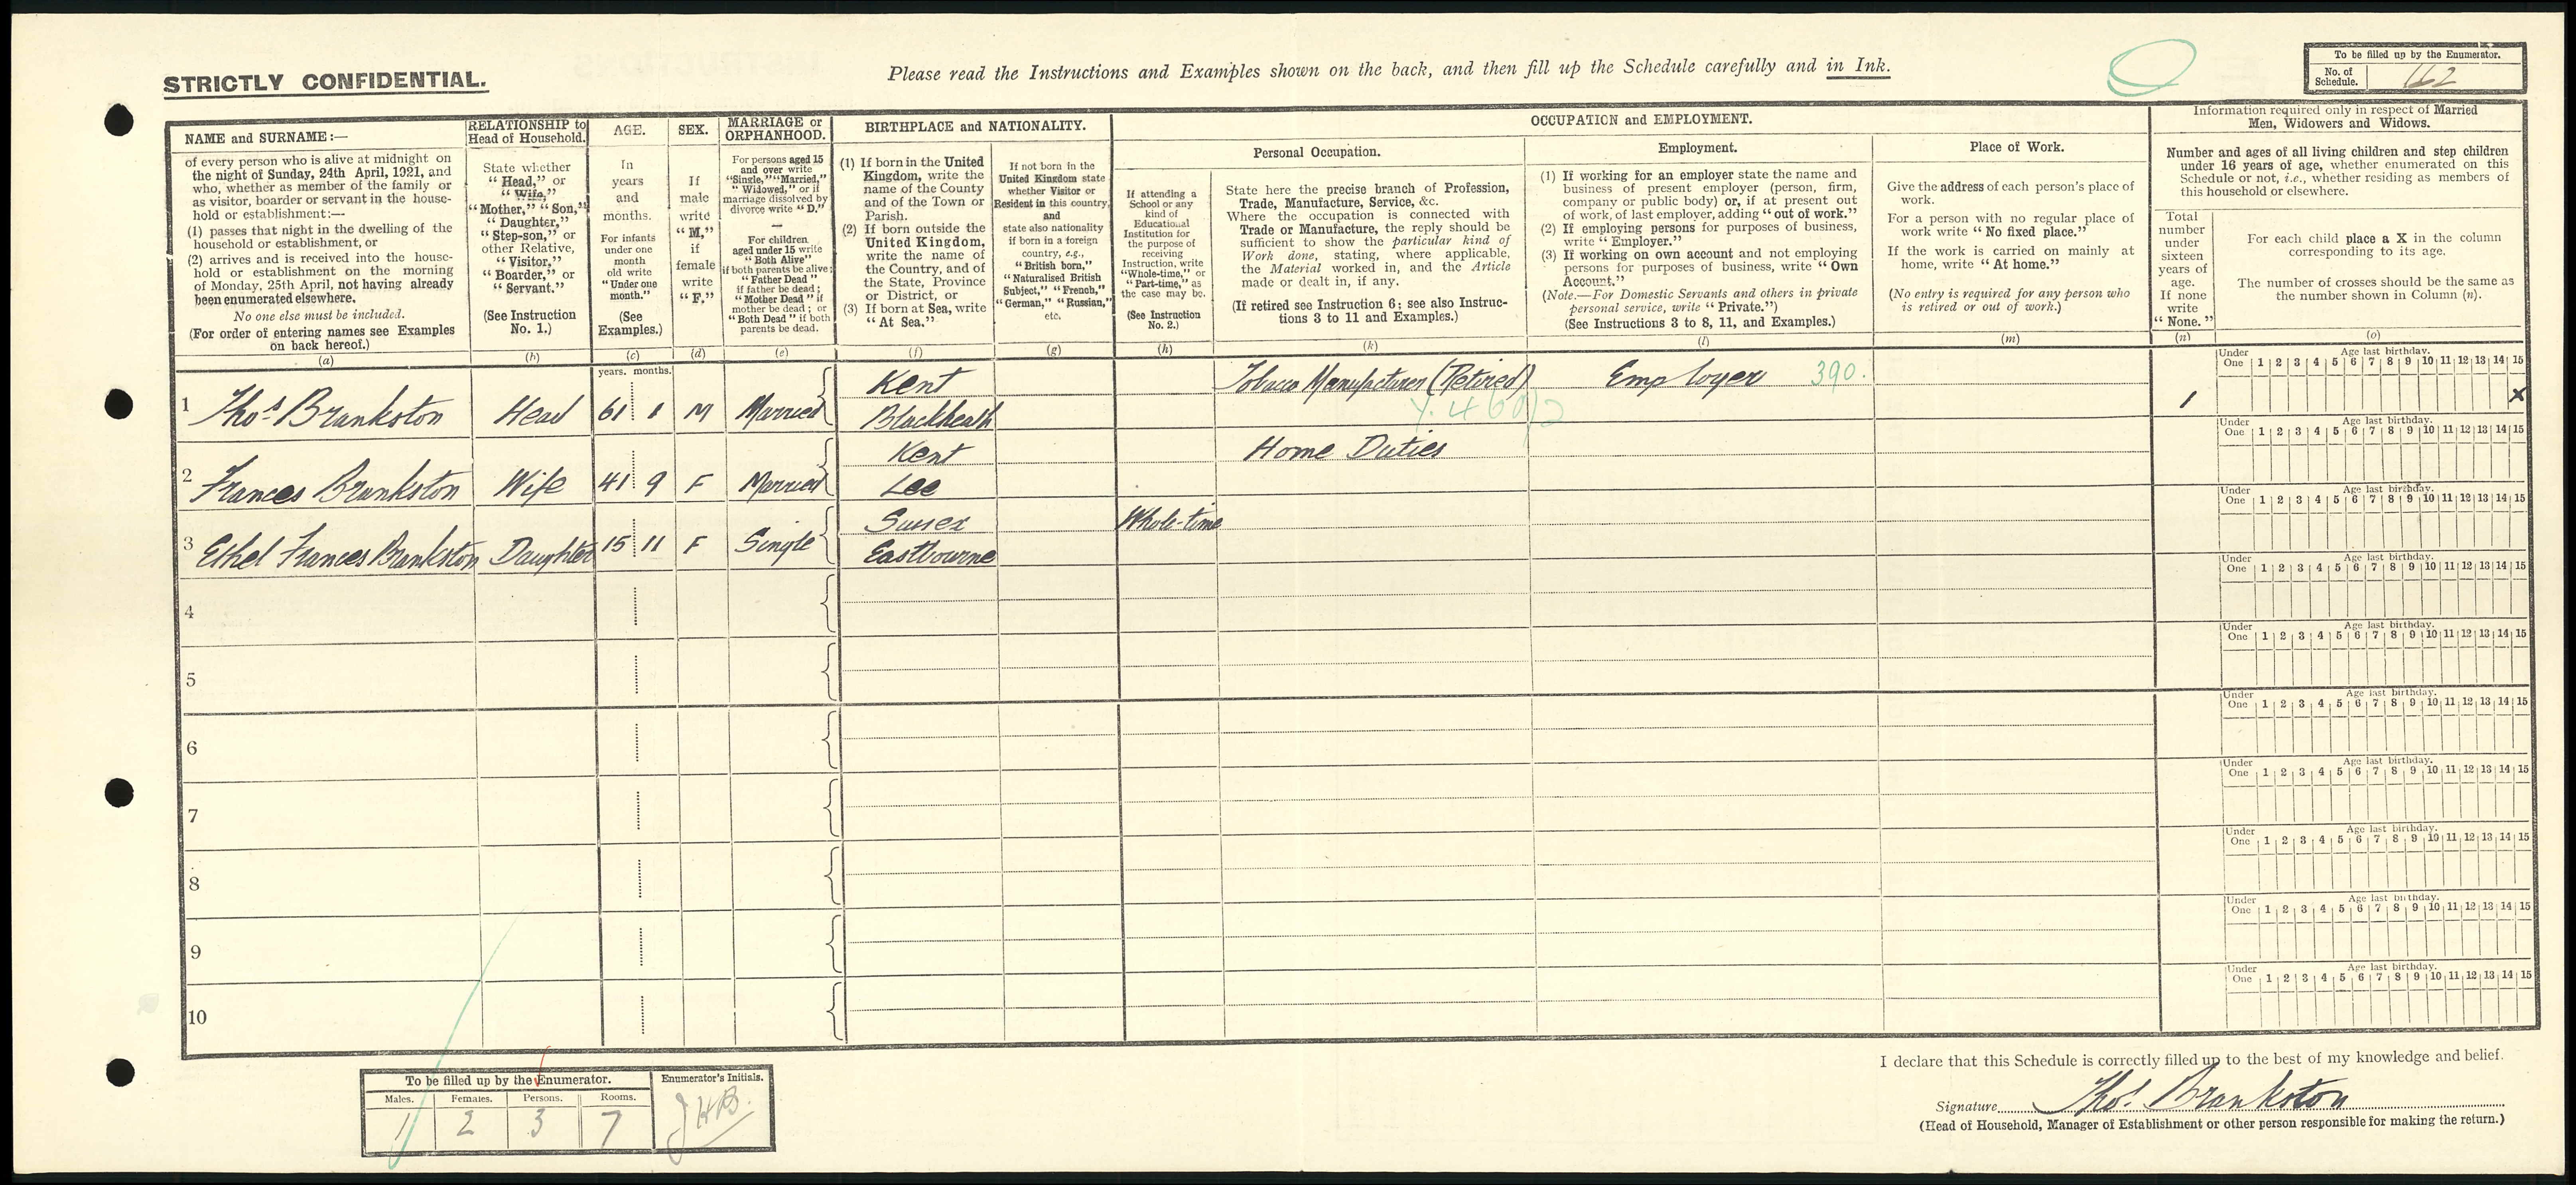 STRICTLY CONFIDENTIAL.
Please read the Instructions and Examples shown on the back, and then fill up the Schedule carefully and in Ink.
To be filled up by the Enumerator.
No. of Schedule. 162
NAME and SURNAME:—
of every person who is alive at midnight on
the night of Sunday, 24th April, 1921, and
who, whether as member of the family or
as visitor, boarder or servant in the house-
hold or establishment:—
(1) passes that night in the dwelling of the
household or establishment, or
(2) arrives and is received into the house-
hold or establishment on the morning
of Monday, 25th April, not having already
been enumerated elsewhere.
No one else must be included.
(For order of entering names see Examples
on back hereof.)
(a)
RELATIONSHIP to
Head of Household.
State whether
"Head," or
"Wife,"
"Mother," "Son,"
"Daughter,"
"Step-son," or
other Relative,
"Visitor,"
"Boarder," or
"Servant."
(See Instruction
No. 1.)
(b)
AGE.
In
years
and
months.
For infants
under one
month
old write
"Under one
month."
(See
Examples.)
(c)
SEX.
If
male
write
"M,"
if
female
write
"F."
(d)
MARRIAGE or
ORPHANHOOD.
For persons aged 15
and over write
"Single," "Married,"
"Widowed," or if
marriage dissolved by
divorce write "D."
—
For children
aged under 15 write
"Both Alive"
if both parents be alive;
"Father Dead"
if father be dead;
"Mother Dead" if
mother be dead; or
"Both Dead" if both
parents be dead.
(e)
BIRTHPLACE and NATIONALITY.
(1) If born in the United
Kingdom, write the
name of the County
and of the Town or
Parish.
(2) If born outside the
United Kingdom,
write the name of
the Country, and of
the State, Province
or District, or
(3) If born at Sea, write
"At Sea."
(f)
If not born in the
United Kingdom state
whether Visitor or
Resident in this country,
and
state also nationality
if born in a foreign
country, e.g.,
"British born,"
"Naturalised British
Subject," "French,"
"German," "Russian,"
etc.
(g)
OCCUPATION and EMPLOYMENT.
Personal Occupation.
If attending a
School or any
kind of
Educational
Institution for
the purpose of
receiving
Instruction, write
"Whole-time," or
"Part-time," as
the case may be.
(See Instruction
No. 2.)
(h)
State here the precise branch of Profession,
Trade, Manufacture, Service, &c.
Where the occupation is connected with
Trade or Manufacture, the reply should be
sufficient to show the particular kind of
Work done, stating, where applicable,
the Material worked in, and the Article
made or dealt in, if any.
(If retired see Instruction 6; see also Instruc-
tions 3 to 11 and Examples.)
(k)
Employment.
(1) If working for an employer state the name and
business of present employer (person, firm,
company or public body) or, if at present out
of work, of last employer, adding "out of work."
(2) If employing persons for purposes of business,
write "Employer."
(3) If working on own account and not employing
persons for purposes of business, write "Own
Account."
(Note.—For Domestic Servants and others in private
personal service, write "Private.")
(See Instructions 3 to 8, 11, and Examples.)
(l)
Place of Work.
Give the address of each person's place of
work.
For a person with no regular place of
work write "No fixed place."
If the work is carried on mainly at
home, write "At home."
(No entry is required for any person who
is retired or out of work.)
(m)
Information required only in respect of Married
Men, Widowers and Widows.
Number and ages of all living children and step children
under 16 years of age, whether enumerated on this
Schedule or not, i.e., whether residing as members of
this household or elsewhere.
Total
number
under
sixteen
years of
age.
If none
write
"None."
(n)
For each child place a X in the column
corresponding to its age.
The number of crosses should be the same as
the number shown in Column (n).
(o)
years. months.
Under One Age last birthday. 1 2 3 4 5 6 7 8 9 10 11 12 13 14 15
1 Thos Brankston Head 61 1 M Married Kent Blackheath Tobacco Manufacturer (Retired) Employer 390. 1 X
Y. 460/2
Under One Age last birthday. 1 2 3 4 5 6 7 8 9 10 11 12 13 14 15
2 Frances Brankston Wife 41 9 F Married Kent Lee Home Duties
Under One Age last birthday. 1 2 3 4 5 6 7 8 9 10 11 12 13 14 15
3 Ethel Frances Brankston Daughter 15 11 F Single Sussex Eastbourne Whole-time
Under One Age last birthday. 1 2 3 4 5 6 7 8 9 10 11 12 13 14 15
4
Under One Age last birthday. 1 2 3 4 5 6 7 8 9 10 11 12 13 14 15
5
Under One Age last birthday. 1 2 3 4 5 6 7 8 9 10 11 12 13 14 15
6
Under One Age last birthday. 1 2 3 4 5 6 7 8 9 10 11 12 13 14 15
7
Under One Age last birthday. 1 2 3 4 5 6 7 8 9 10 11 12 13 14 15
8
Under One Age last birthday. 1 2 3 4 5 6 7 8 9 10 11 12 13 14 15
9
Under One Age last birthday. 1 2 3 4 5 6 7 8 9 10 11 12 13 14 15
10
To be filled up by the Enumerator.
Males. Females. Persons. Rooms.
1 2 3 7
Enumerator's Initials.
JHB.
I declare that this Schedule is correctly filled up to the best of my knowledge and belief.
Signature Thos. Brankston
(Head of Household, Manager of Establishment or other person responsible for making the return.)